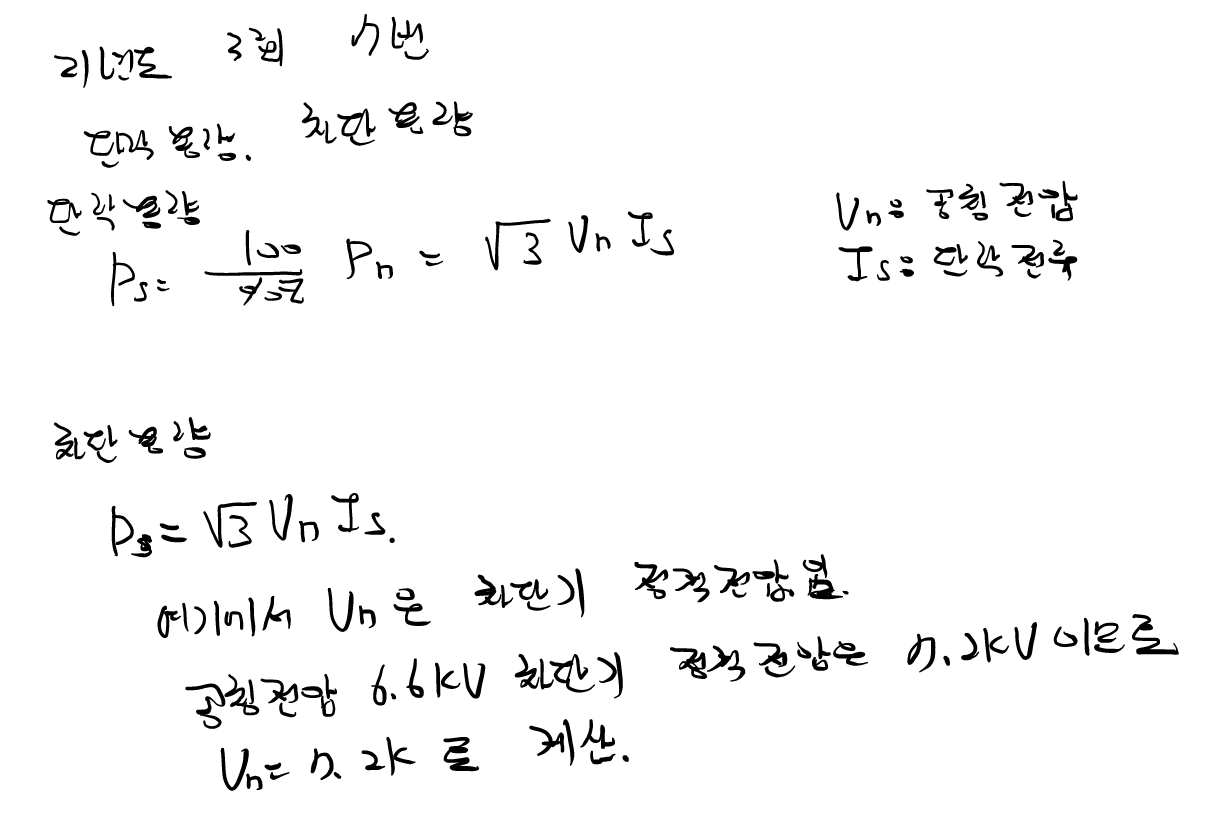 21년도 3회 7번
단락용량. 차단용량
단락용량
Ps = 100/%Z Pn = √3 Vn Is
Vn: 공칭전압
Is: 단락전류
차단용량
Ps = √3 Vn Is.
여기에서 Vn은 차단기 정격전압임.
공칭전압 6.6kV 차단기 정격전압은 7.2kV 이므로
Vn = 7.2k 로 계산.